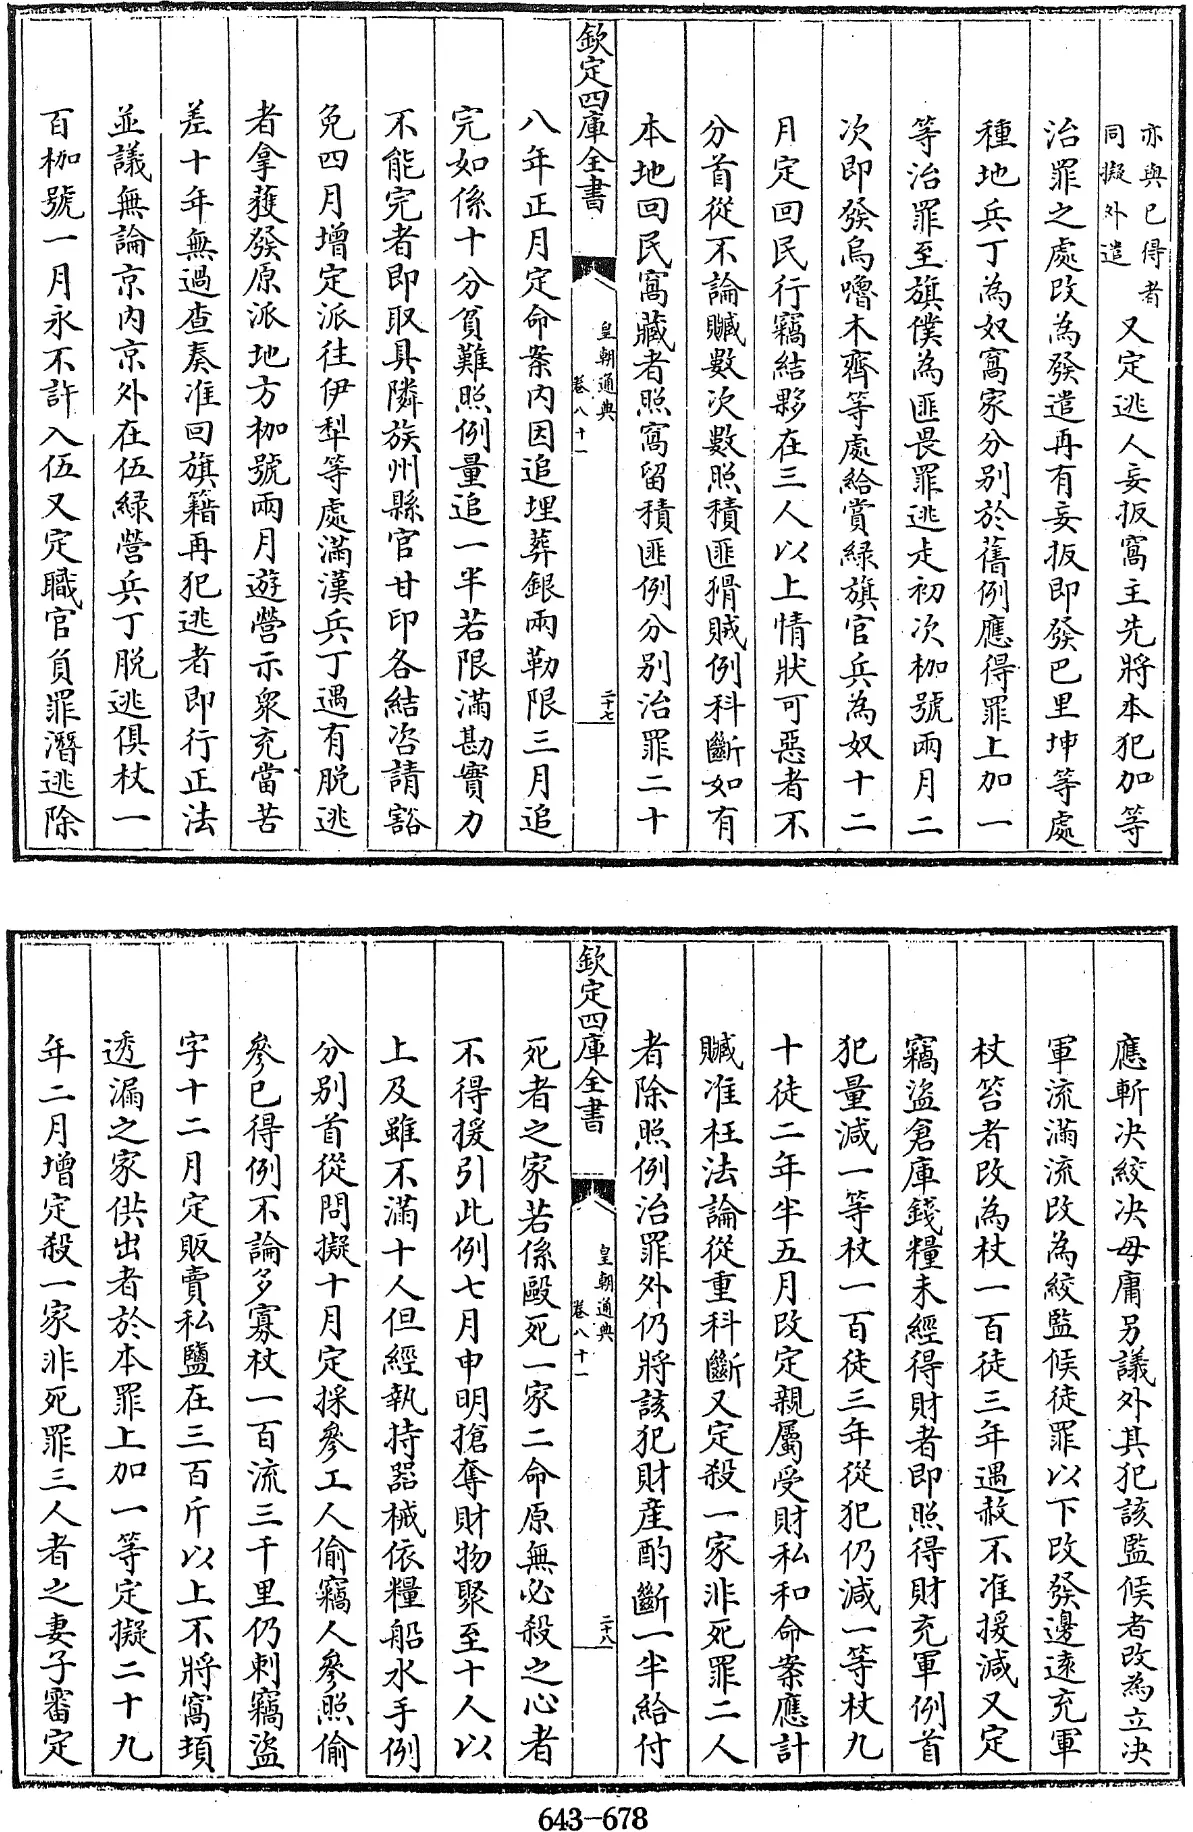 亦與已得者
同擬外遣
又定逃人妄扳窩主先將本犯加等
治罪之處改為發遣再有妄扳即發巴里坤等處
種地兵丁為奴窩家分别於舊例應得罪上加一
等治罪至旗僕為匪畏罪逃走初次枷號兩月二
次即發烏嚕木齊等處給賞緑旗官兵為奴十二
月定回民行竊結夥在三人以上情狀可惡者不
分首從不論贓數次數照積匪猾賊例科斷如有
本地回民窩藏者照窩留積匪例分别治罪二十
欽定四庫全書
皇朝通典
卷八十一
二十七
八年正月定命案内因追埋葬銀兩勒限三月追
完如係十分貧難照例量追一半若限滿勘實力
不能完者即取具隣族州縣官甘印各結咨請豁
免四月增定派往伊犁等處滿漢兵丁遇有脱逃
者拿獲發原派地方枷號兩月遊營示衆充當苦
差十年無過查奏准回旗籍再犯逃者即行正法
並議無論京内京外在伍緑營兵丁脱逃俱杖一
百枷號一月永不許入伍又定職官負罪潛逃除
應斬决絞决毋庸另議外其犯該監候者改為立决
軍流滿流改為絞監候徒罪以下改發邊遠充軍
杖笞者改為杖一百徒三年遇赦不准援減又定
竊盜倉庫錢糧未經得財者即照得財充軍例首
犯量減一等杖一百徒三年從犯仍減一等杖九
十徒二年半五月改定親屬受財私和命案應計
贓准枉法論從重科斷又定殺一家非死罪二人
者除照例治罪外仍將該犯財産酌斷一半給付
欽定四庫全書
皇朝通典
卷八十一
二十八
死者之家若係毆死一家二命原無必殺之心者
不得援引此例七月申明搶奪財物聚至十人以
上及雖不滿十人但經執持器械依糧船水手例
分别首從問擬十月定採參工人偷竊人參照偷
參已得例不論多寡杖一百流三千里仍刺竊盜
字十二月定販賣私鹽在三百斤以上不將窩頓
透漏之家供出者於本罪上加一等定擬二十九
年二月增定殺一家非死罪三人者之妻子審定
643-678